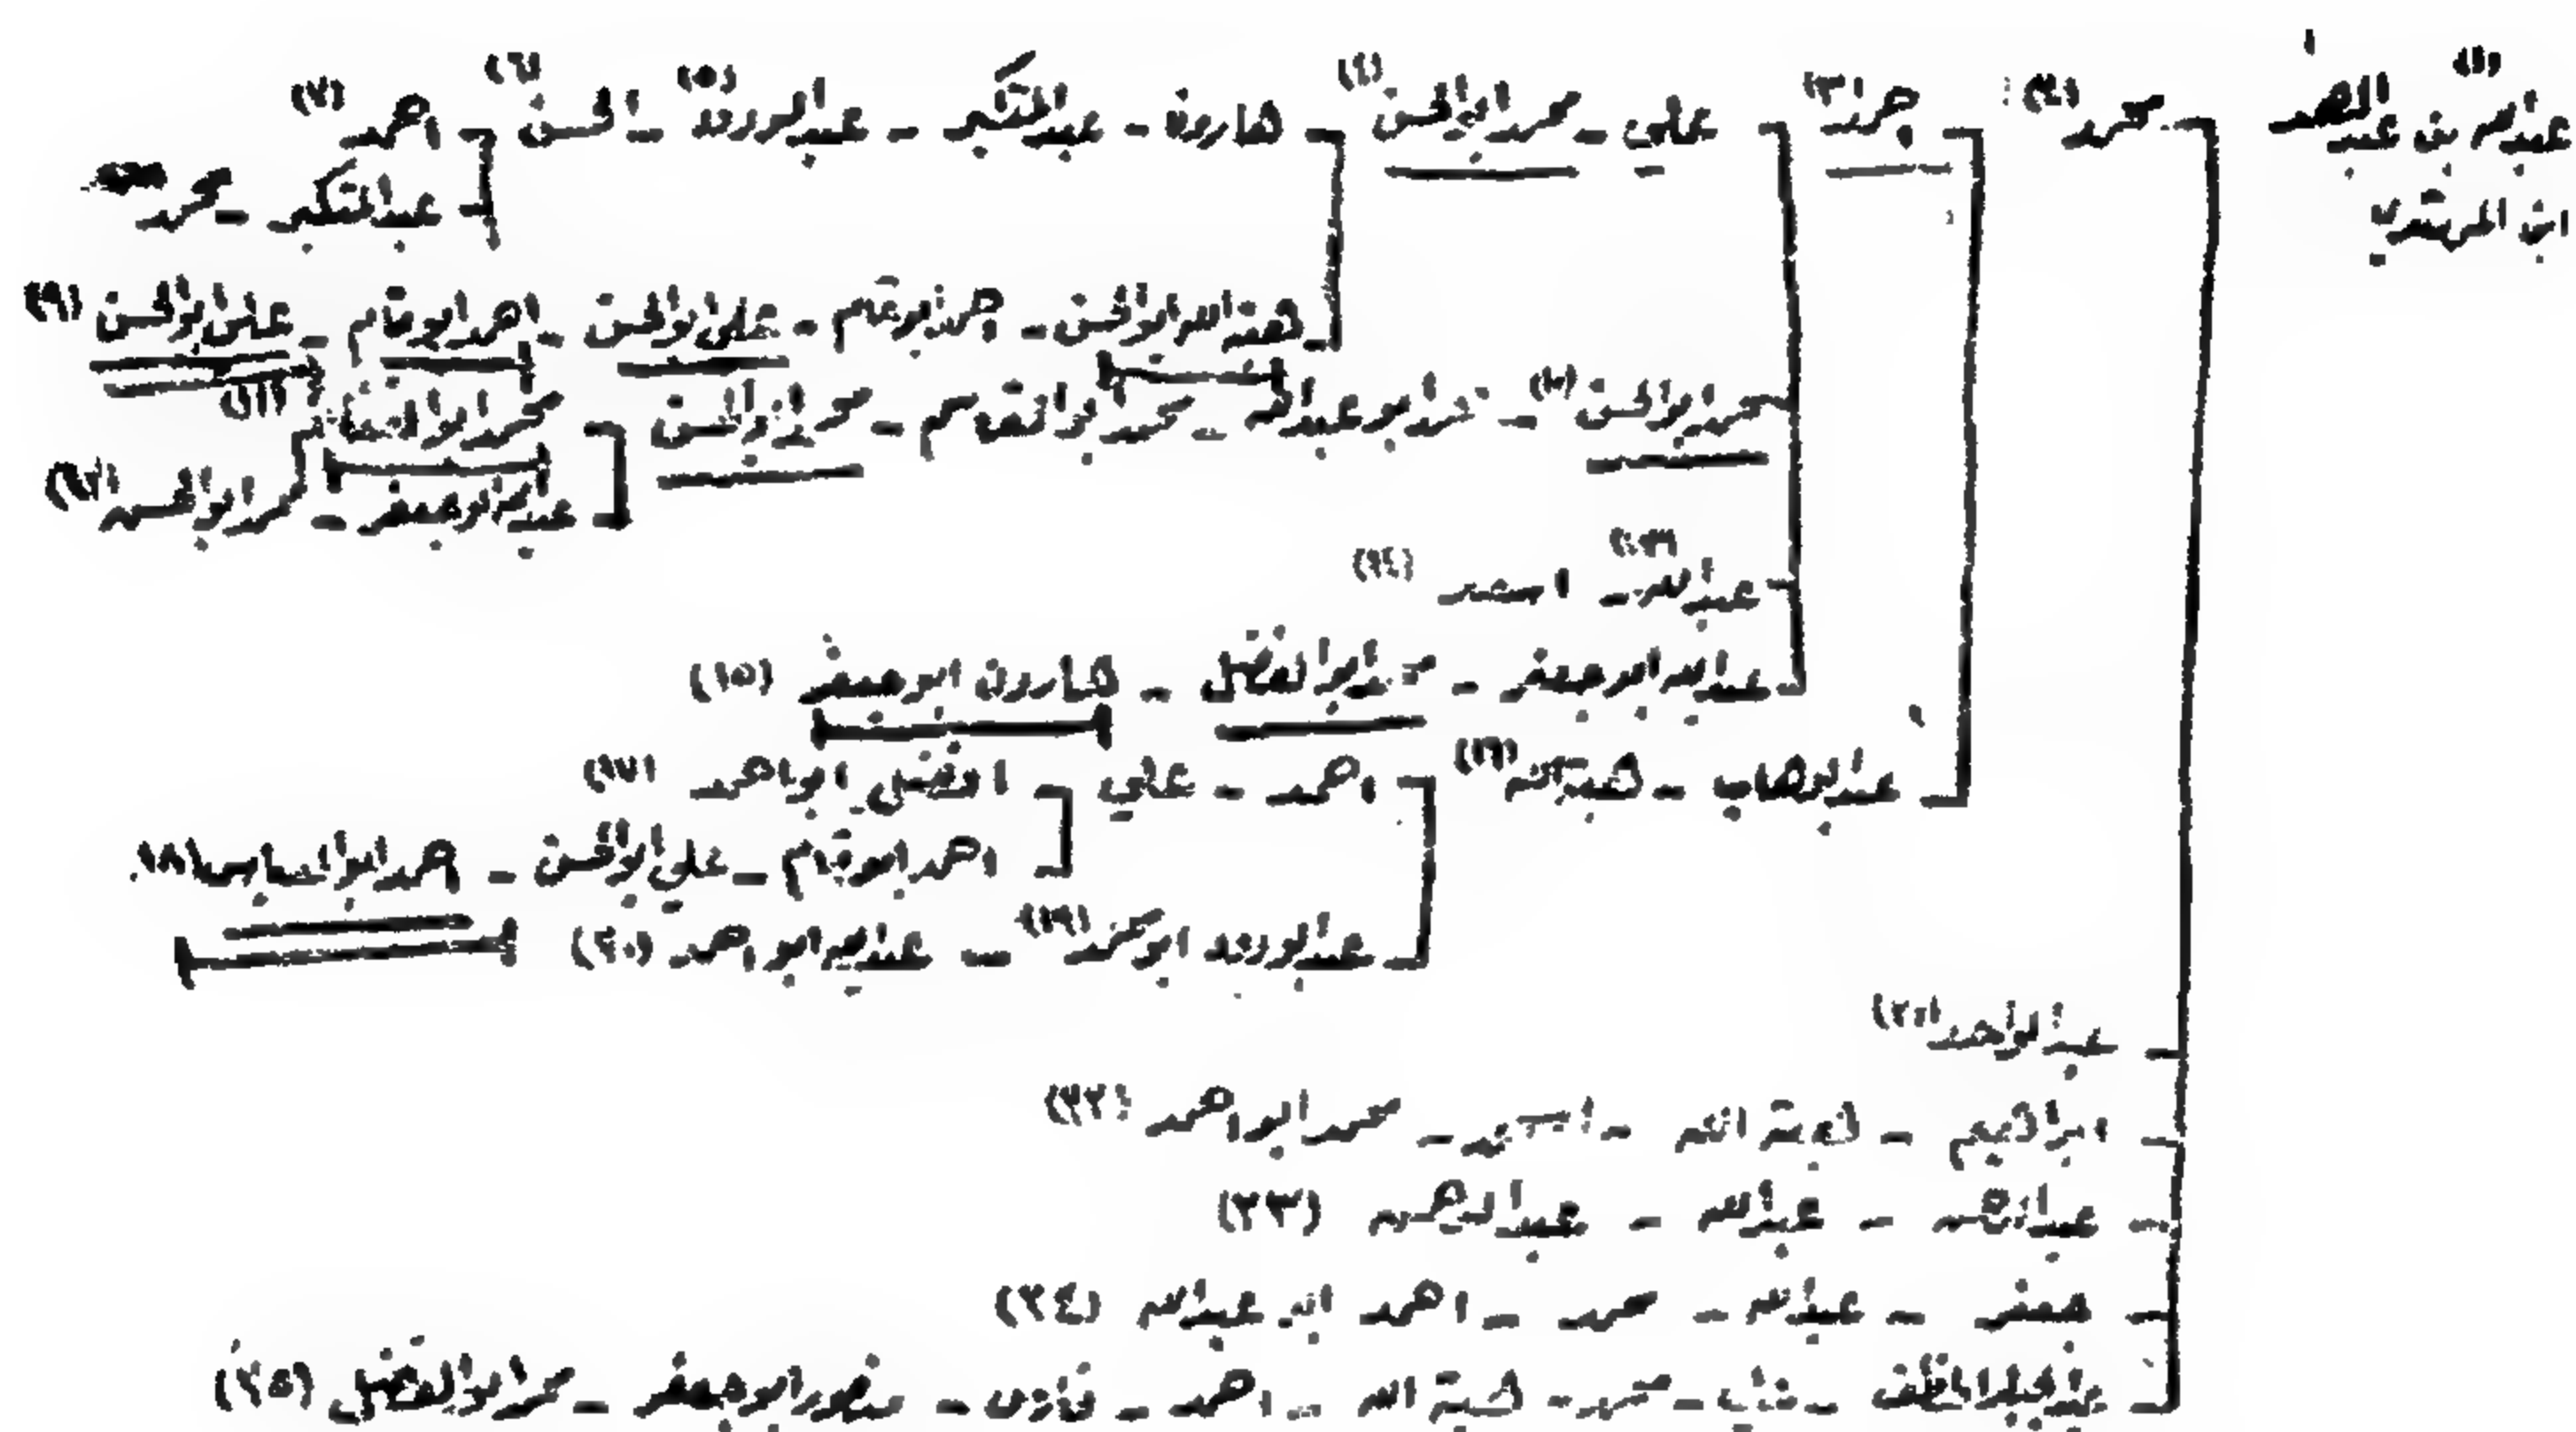 عبدالله بن عبدالصمد (١) محمد (٢) (٣) علي - محمد ابوالحسن (٤) هارون - عبدالمتكبر - عبدالودود (٥) - الحسن (٦) احمد (٧)
ابن المهتدي
عبدالمتكبر - محمد
هبة الله ابوالحسن - ابوتمام - علي ابوالحسن - احمد ابوتمام - علي ابوالحسن (٩)
محمد ابوالحسن (١٠) - ابوعبدالله - محمد ابوالقاسم - محمد ابوالحسن محمد ابوالغنائم (١١)
عبدالله ابوجعفر - محمد ابوالحسن (١٢)
عبدالله (١٣) - (١٤)
عبدالله ابوجعفر - محمد ابوالفضل - هارون ابوجعفر (١٥)
عبدالوهاب - هبة الله (١٦) احمد - علي الفضل ابواحمد (١٧)
احمد ابوتمام - علي ابوالحسن - احمد ابوالعباس (١٨)
عبدالودود ابومحمد (١٩) - عبدالله ابواحمد (٢٠)
عبدالواحد (٢١)
ابراهيم - هبة الله - - محمد ابواحمد (٢٢)
- عبدالله - عبدالرحمن (٢٣)
جعفر - عبدالله - محمد - احمد ابو عبدالله (٢٤)
- محمد - هبة الله - احمد - - منصور ابوجعفر - محمد ابوالفضل (٢٥)